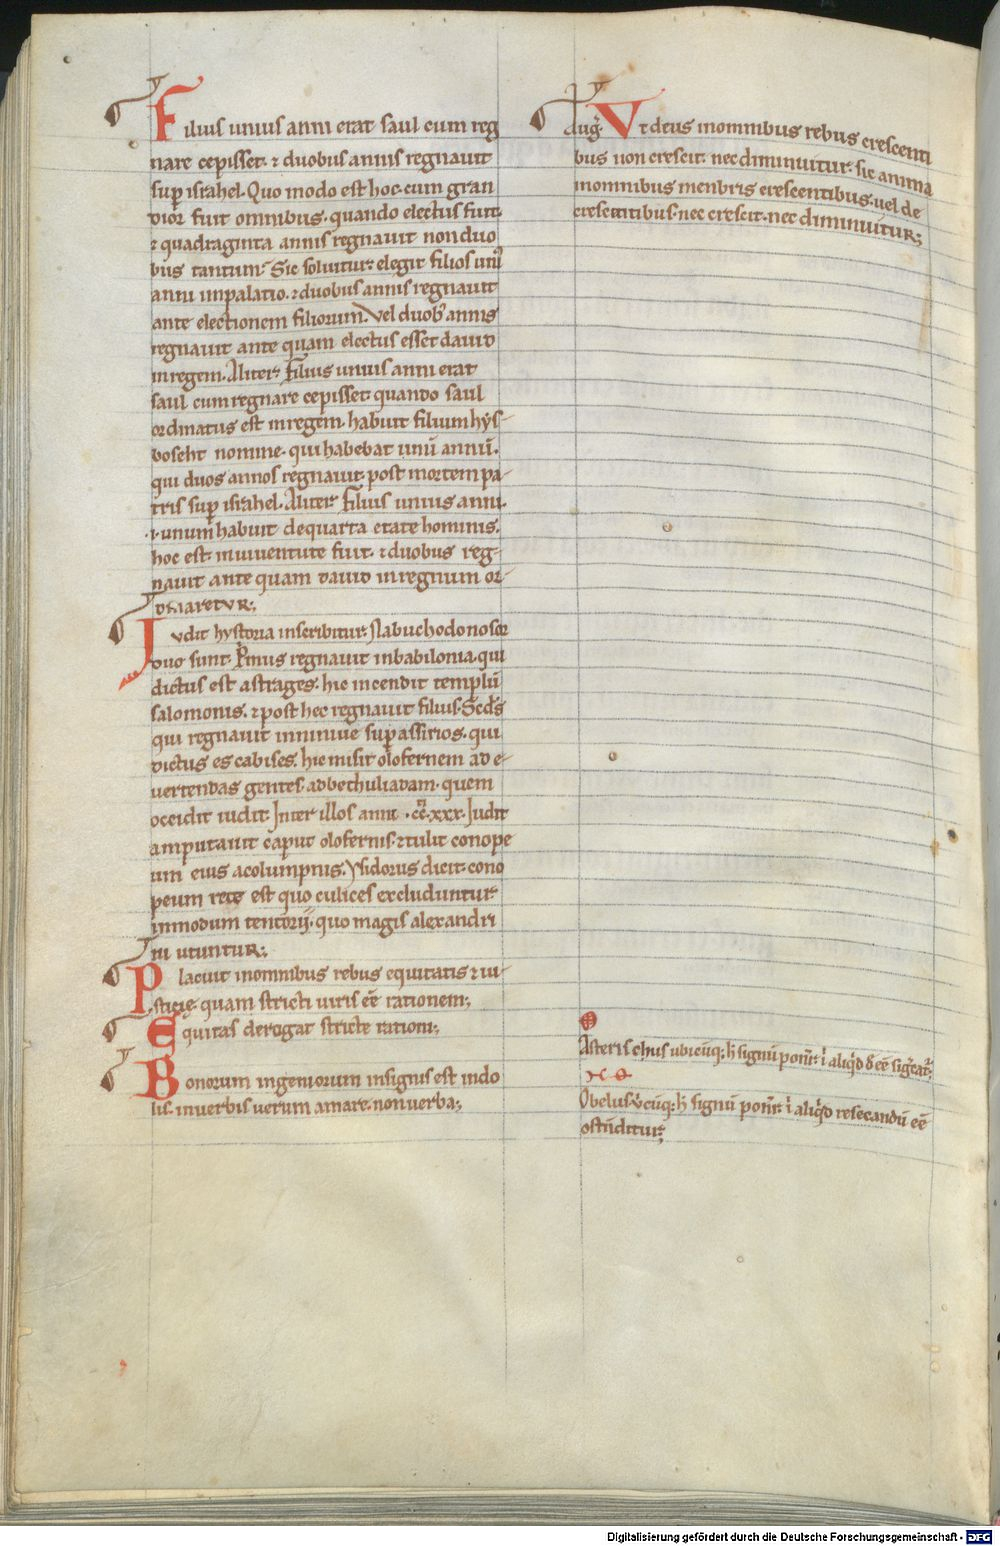 Filius unius anni erat saul cum reg
nare cepisset. ⁊ duobus annis regnauit
sup̲ isrʼahel. Quo modo est hoc. cum gran
dior fuit omnibus. quando electus fuit.
⁊ quadraginta annis regnauit non duo
bus tantum. Sic soluitur. elegit filios uni᾽
anni in palatio. ⁊ duobus annis regnauit
ante electionem filiorum. Vel duob᾽ annis
regnauit ante quam electus esset dauid
in regem. Aliter. Filius unius anni erat
saul cum regnare cepisset. quando saul
ordinatus est in regem. habuit filium hys-
boseht nomine. qui habebat unū annū.
qui duos annos regnauit. post mortem pa-
tris sup̲ isrʼahel. Aliter. Filius unius anni.
.i. unum habuit de quarta etate hominis.
hoc est in iuuentute fuit. ⁊ duobus reg-
nauit ante quam dauid in regnum or-
dinaretur;
Iudit hystoria inscribitur. Nabuchodonosor
duo sunt. Pͥmus regnauit in babilonia. qui
dictus est astrages. hic incendit templū
salomonis. ⁊ post hec regnauit filius. Scd̄s
qui regnauit in niniue sup̲ assirios. qui
dictus es cabises. hic misit olofernem ad e-
uertendas gentes. ad bethuliadam. quem
occidit iudit. Inter illos anni .cc̄.xxx. Iudit
amputauit caput olofernis. ⁊ tulit conope
um eius a columpnis. Ysidorus dicit. cono
peum rete est quo culices excluduntur
in modum tentorij. quo magis alexandri
ni utuntur;
Placuit in omnibus rebus equitatis ⁊ iu-
sticię. quam stricti uiris eē rationem;
Equitas derogat stricte rationi;
Bonorum ingeniorum insignis est indo
lis. in uerbis uerum amare. non uerba;
Aug᾽. Vt deus in omnibus rebus crescenti
bus non crescit. nec diminuitur. sic anima
in omnibus menbris crescentibus. uel de
crescentibus. nec crescit. nec diminuitur;
Asterischus ubicūq; h̄ signū ponit᾽. i aliqͥd
Obelus. ūcūq; h̄ signū ponit᾽. i aliqͥd resecandū eē
ostēditur;
Digitalisierung gefördert durch die Deutsche Forschungsgemeinschaft - DFG